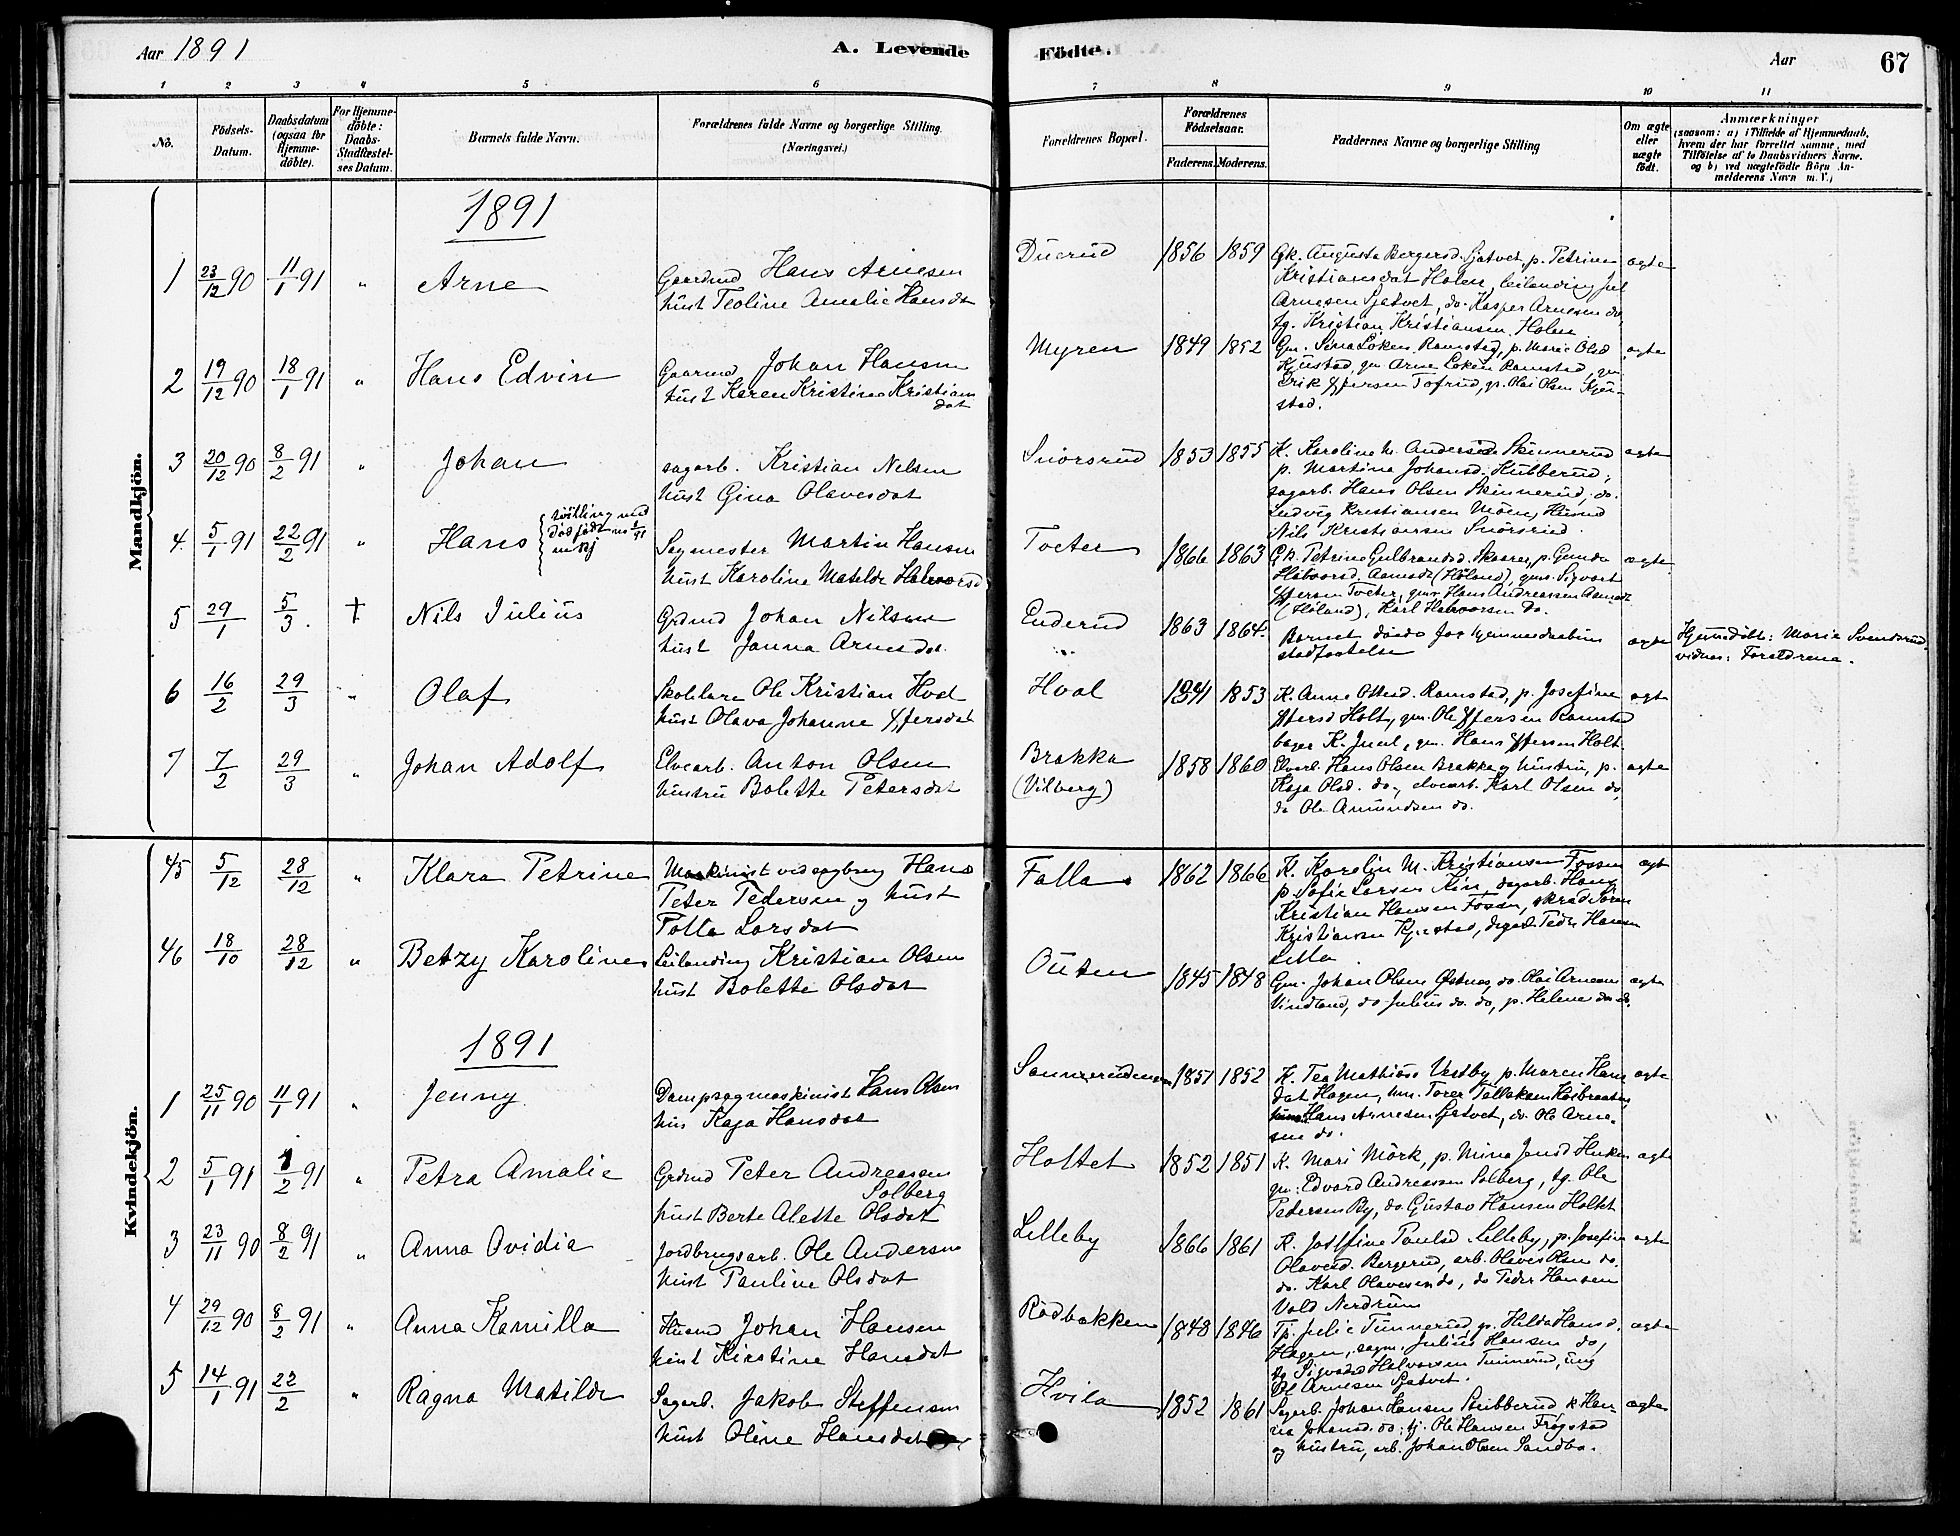 Aar 1891
A. Levende
Födte.
Aar
67
1 2 3 4 5 6 7 8 9 10 11
No.
Födsels-
Datum.
Daabsdatum
(ogsaa for
Hjemme-
döbte).
For Hjemme-
döbte:
Daabs-
Stadfæstel-
ses Datum.
Barnets fulde Navn.
Forældrenes fulde Navne og borgerlige Stilling.
(Næringsvei.)
Forældrenes Bopæl.
Forældrenes
Födselsaar.
Faderens. Moderens.
Faddernes Navne og borgerlige Stilling
Om ægte
eller
uægte
födt.
Anmærkninger
(saasom: a) i Tilfælde af Hjemmedaab,
hvem der har forrettet samme, med
Tilföielse af to Daabsvidners Navne.
og b) ved uægtefödte Börn An-
melderens Navn m. V.)
Mandkjön.
1891
1 23/12 90 11/1 91 " Arne
Gaardmd Hans Arnesen
hust Teoline Amalie Hansdat
Duerud 1856 1859
Gk. Augusta Bergersd. Sjatvet, p. Petrine
Kristiansdat Holen, leilending Jul
Arnesen Sjatvet, do. Kasper Arnesen do,
tg. Kristian Kristiansen Holen
ægte
2 19/12 90 18/1 91 " Hans Edvin
Gaarmd Johan Hansen
hust Karen Kristine Kristians
dat
Myren 1849 1852
Gm. Sina Löken Ramstad, p. Marie Olsd
Kjustad, gm Arne Löken Ramstad, gm
Erik Tofrud, gs. Olai Olsen Kjus-
stad.
ægte
3 20/12 90 8/2 91 " Johan
sagarb. Kristian Nilsen
hust Gina Olavesdat
Snörsrud 1853 1855
K. Karoline M. Andersd Skinnerud
p. Martina Johansd. Kubberud,
sagarb. Hans Olsen Skinnerud, do.
Ludvig Kristiansen Moen, Husmd
Nils Kristiansen Snörsrud
ægte
4. 5/1 91 22/2 91 " Hans
tvilling med
dödfödt no 2/91
mkj
Sagmester Martin Hansen
hust Karoline Matilde Halvorsd
Toeter 1866 1863
Gk. Petrine Gulbrandsd. Skaarer, p. Gunda
Halvorsd. Aamodt (Höland), gms. Sigvart
Toeter, gms. Hans Andreassen Aamodt
(Höland), Karl Halvorsen do.
ægte
5 29/1 5/3. † Nils Julius
Grdmd Johan Nilsen
hust Janna Arnesdat
Enderud 1863 1864.
Barnet döde för hjemmedaabens
stadfæstelse
ægte
Hjemmedöbt: Marie Svendsrud,
vidner: Forældrene.
6 16/2 29/3 " Olaf
Skolelærer Ole Kristian Hval
hust Olava Johanne
Hval 1841 1853
K. Anne Ottersd. Ramstad, p. Josefine
Holt, gm. Ole Ramstad
bager K. Juul, gm. Hans Holt.
ægt
7 7/2 29/3 " Johan Adolf
Elvearb. Anton Olsen
hustru Bolette Petersdat
Brakka
(Vilberg)
1858 1860
Elvarb. Hans Olsen Brakka og hustru, p.
Kaja Olsd. do., elvearb. Karl Olsen do,
do Ole Amundsen do.
ægte
Kvindekjön.
45 5/12 28/12 " Klara Petrine
Maskinist ved sagbrug Hans
Peter Pedersen og hust
Lorsdat
Falla 1862 1866
K. Karolin M. Kristiansen Fossen
p. Sofie Larsen, dagarb. Hans
Kristian Hansen Fossen, skrad Sören
Kristiansen Kjustad, dagarb Peder Hansen
Lilla
ægt
46 18/10 28/12 " Betzy Karoline
Leilending Kristian Olsen
hust Bolette Olsdat
Outen 1845 1848
Gm. Johan Olsen Östnes, do. Olai Arnesen
Vindland, do Julius do. do, p. Helene do do.
ægte
1891
1 25/11 90 11/1 91 " Jenny
Dampsagmaskinist Hans Olsen
hus Kaja Hansdat
1851 1852
K. Tea Mathiass Vestby, p. Maren Hans
dat Hagen, Torer
Hans Arnesen Sjatvet, do. Ole Arne-
sen do.
ægte
2 5/1 91 1/2 91 " Petra Amalie
Grdmd Peter Andreasen
Solberg
hust Berte Alette Olsdat
Holtet 1852 1851
K. Mari Mörk, p. Mina Jensd Huken
gm: Edvard Andreassen Solberg, tg. Ole
Pedersen By, do Gustav Hansen Holtet
ægte
3 23/11 90 8/2 91 " Anna Ovidia
Jordbrugsarb. Ole Andersen
hust Pauline Olsdat
Lilleby 1866 1861
K. Josefine Paulsd Lilleby, p. Josefine
Olavesd. Bergerud, arb. Olaves Olsen do.
do. Karl Olavesen do, do Peder Hansen
Vold Nerdrum
ægte
4 29/12 90 8/2 91 " Anna Kamilla
Husmd Johan Hansen
hust Kirstine Hansdat
Rödbakken 1848 1846
Tj. Julie Tunnerud, p. Hilda Hansd.
Hagen, sagm. Julius Hansen do,
tg Sigvard Halvorsen Tunnerud, ung
Ol Arnesen Sjatvet.
ægte
5 14/1 91 22/2 " Ragna Matilde
Sagarb. Jakob Steffensen
hust Oline Hansdat
Hvila 1852 1861
Sagarb. Johan Hansen Stubberud, k Han-
na Johansd. do; tj. Ole Hansen Frogstad
og hustru, arb. Johan Olsen Sandbo.
ægte